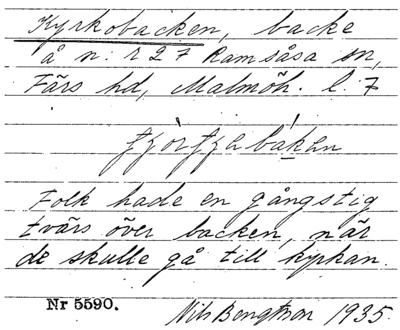 Kyrkobacken, backe
å n: r 27 Ramsåsa sn,
Färs hd, Malmöh. l. 7
Folk hade en gångstig
tvärs över backen, när
de skulle gå till kyrkan.
Nr 5590.
Nils Bengtson 1935.